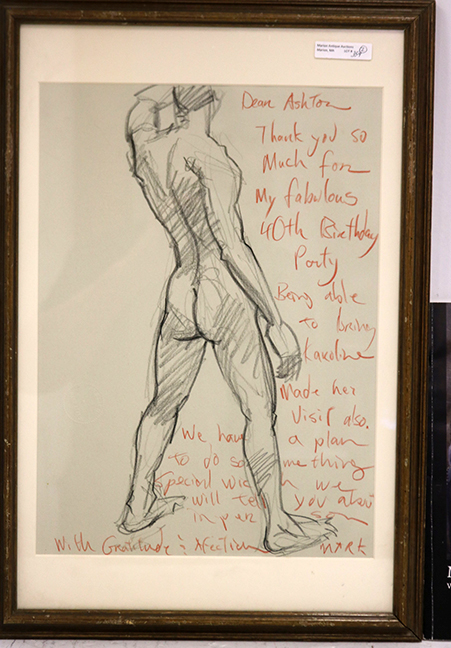 Marion Antique Auctions
Marion, MA LOT #
Dear Ashton
Thank you so
Much for
My fabulous
40th Birthday
Party
Being able
to bring
Karoline
Made her
Visit also.
We have a plan
to do something
Special wich we
will tell you about
in person
With Gratitude & Afection MARK